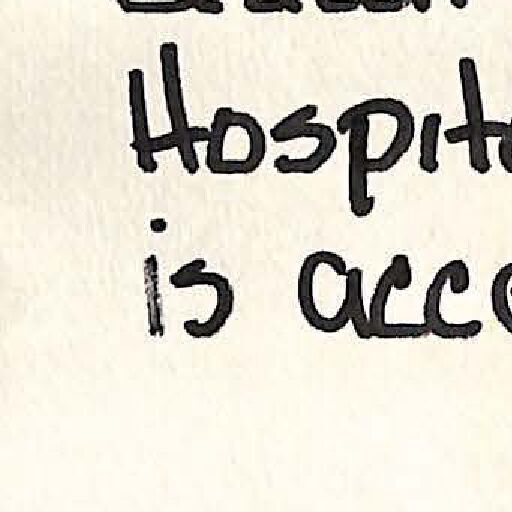 Hospit
is acc